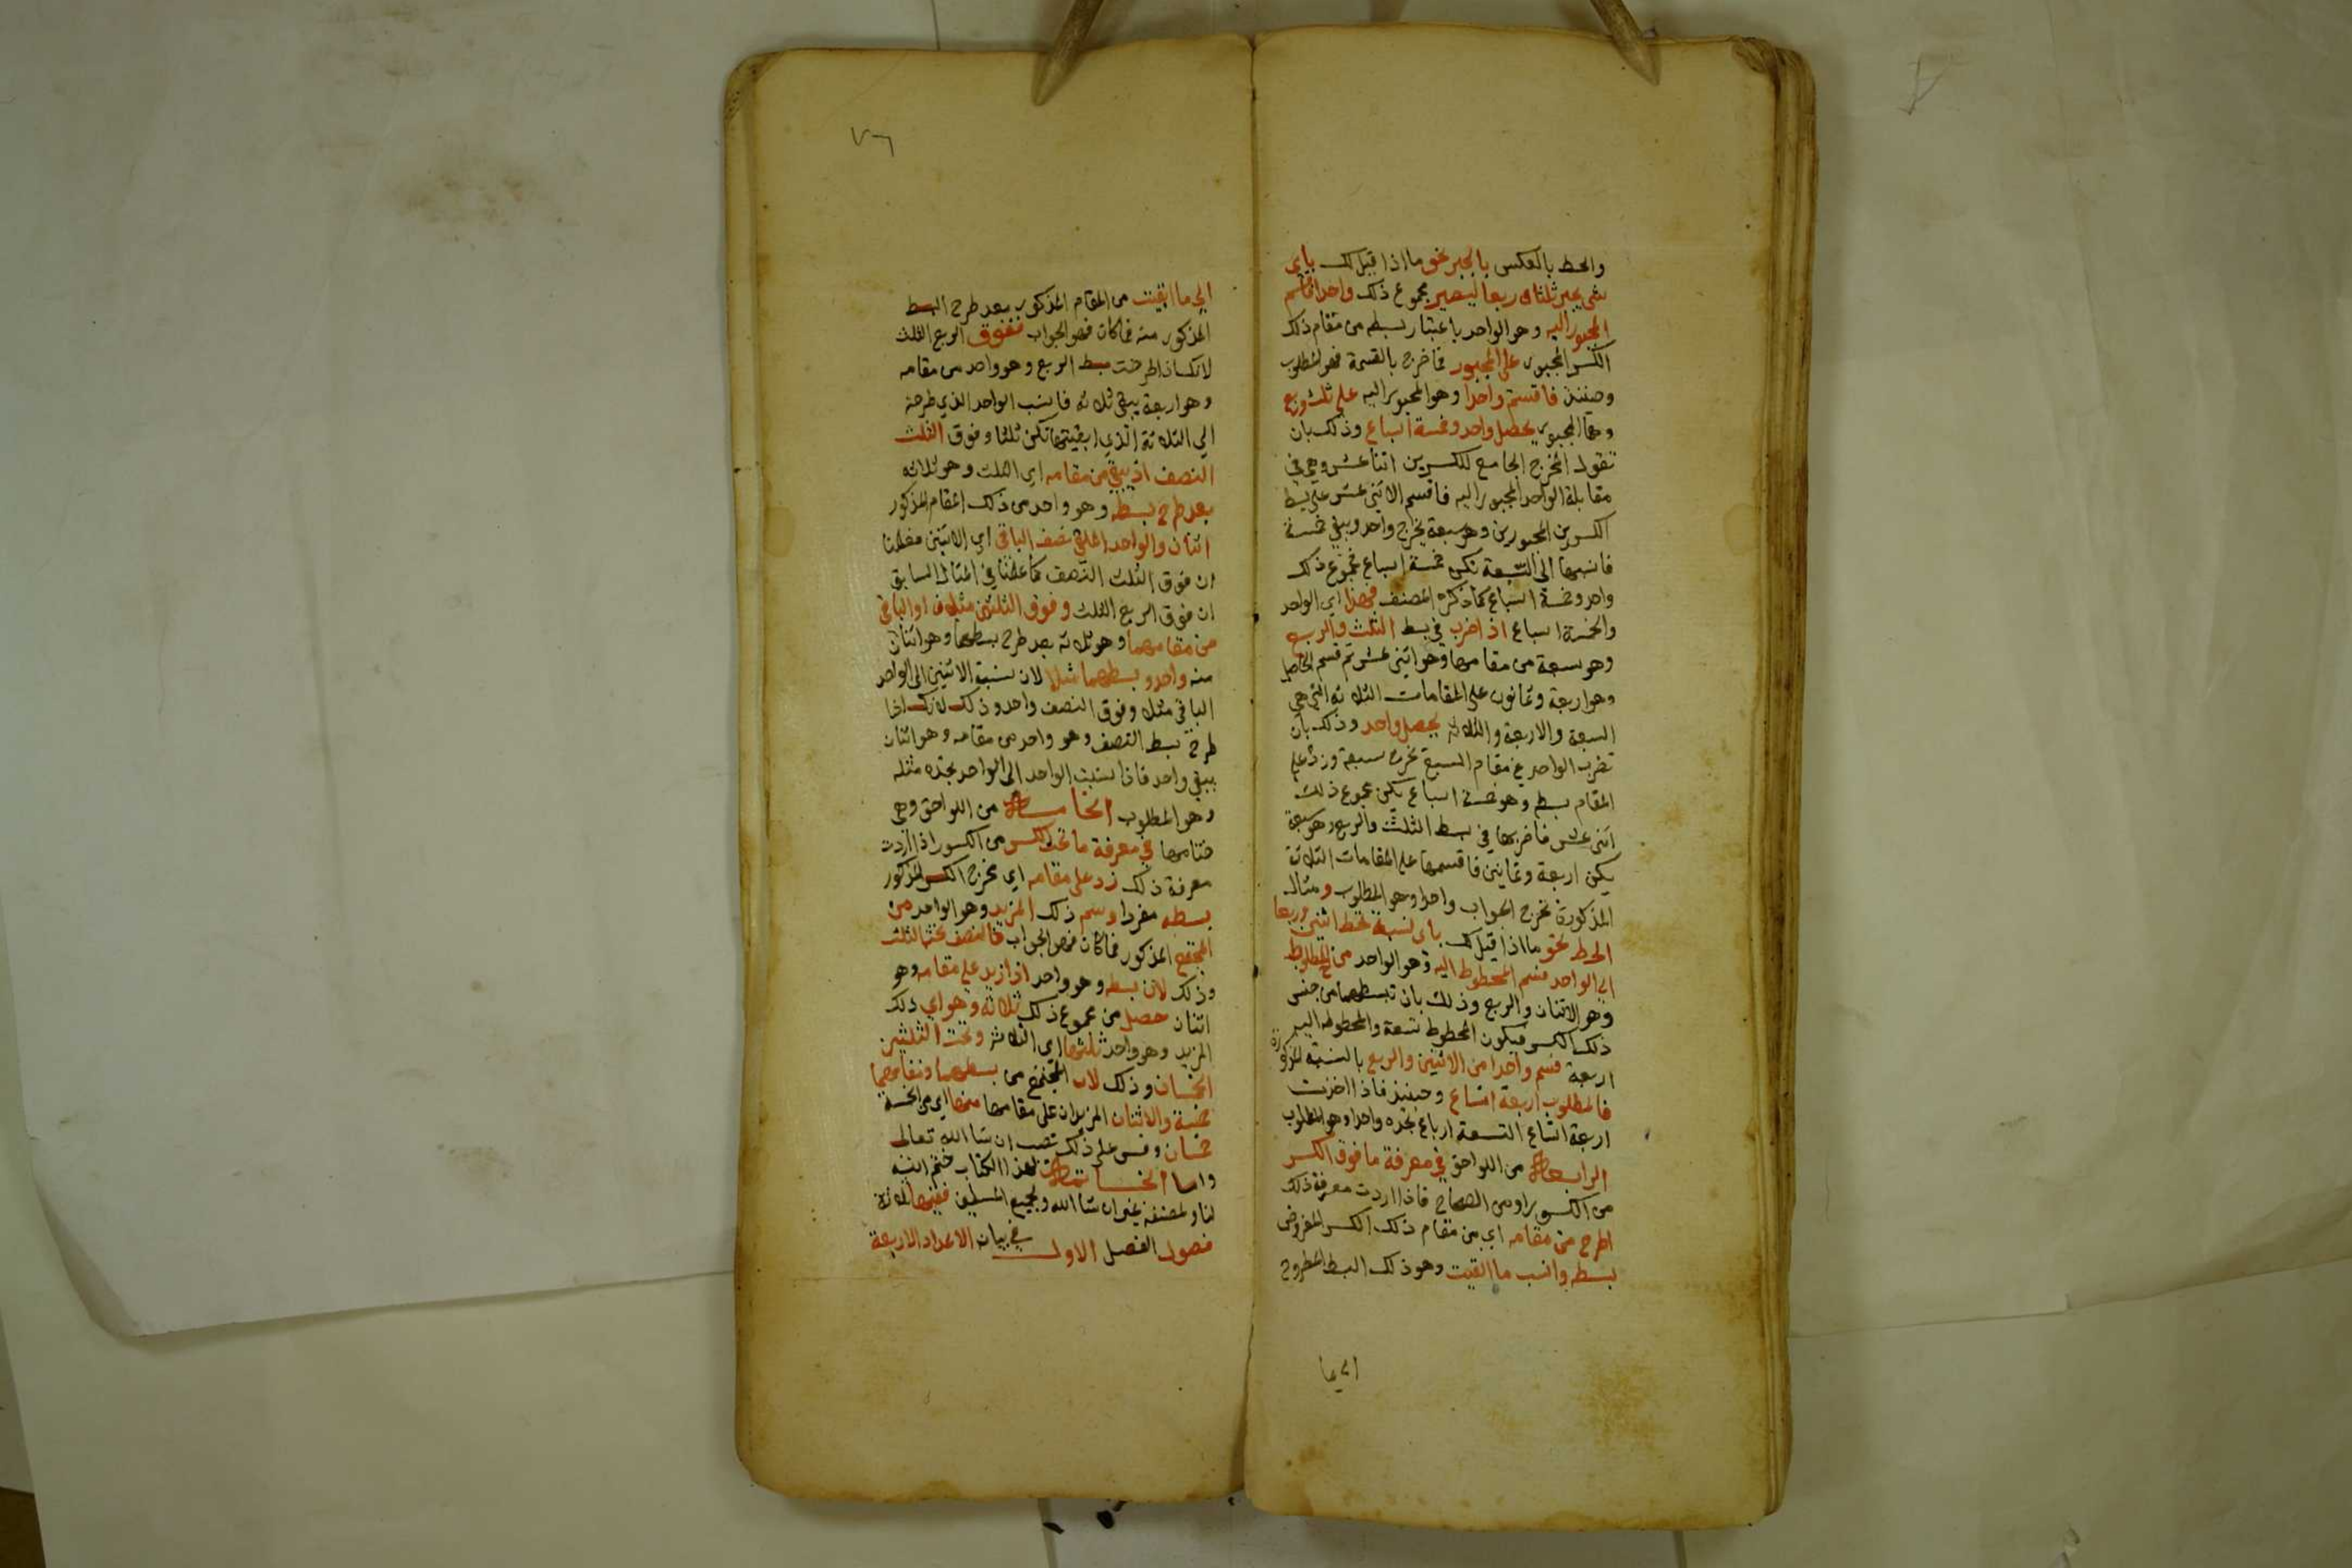 والحط بالعكس بالجبر نحو ما اذا قيل لك باى
شى يجبر ثلثا وربعا ليصير مجموع ذلك واحدا فاقسم
المجبور اليه وهو الواحد باعتبار بسطه من مقام ذلك
الكسر المجبور على المجبور فما خرج بالقسمة فهو المطلوب
وحينئذ فاقسم واحدا وهو المجبور اليه على ثلث وربع
وهما المجبور يحصل واحد وخمسة اسباع وذلك بان
تقول المخرج الجامع للكسرين اثنا عشر وهي في
مقابلة الواحد المجبور اليه فاقسم الاثنى عشر على بسط
الكسرين المجبورين وهو سبعة يخرج واحد ويبقى خمسة
فانسبها الى السبعة تكن خمسة اسباع فمجموع ذلك
واحد وخمسة اسباع كما ذكره المصنف فهذا اي الواحد
والخمسة اسباع اذا ضرب في بسط الثلث والربع
وهو سبعة من مقامها وهو اثنى عشر ثم قسم الحاصل
وهو اربعة وثمانون على المقامات الثلاثة التي هي
السبعة والاربعة والثلاثة يحصل واحد وذلك بان
تضرب الواحد في مقام السبع تخرج سبعة وزد على
المقام بسطه وهو خمسة اسباع يكن مجموع ذلك
اثنى عشر فاضربها في بسط الثلث والربع وهو سبعة
يكن اربعة وثمانين فاقسمها على المقامات الثلاثة
المذكورة يخرج الجواب واحدا وهو المطلوب ومثال
الحط نحو ما اذا قيل لك باى نسبة تحط اثنين وربعا
الى الواحد فسم المحطوط اليه وهو الواحد من المحطوط
وهو الاثنان والربع وذلك بان تبسطهما من جنس
ذلك الكسر فيكون المحطوط تسعة والمحطوط اليه
اربعة فسم واحدا من الاثنين والربع بالنسبة المذكورة
فالمطلوب اربعة اتساع وحينئذ فاذا اخذت
اربعة اتساع التسعة ارباع تجده واحدا وهو المطلوب
الرابعة من اللواحق في معرفة ما فوق الكسر
من الكسور او من الصحاح فاذا اردت معرفة ذلك
اطرح من مقامه اي من مقام ذلك الكسر المفروض
بسطه وانسب ما القيت وهو ذلك البسط المطروح
الى ما
٧٦
الى ما ابقيت من المقام المذكور بعد طرح البسط
المذكور منه فما كان فهو الجواب ففوق الربع الثلث
لانك اذا طرحت بسط الربع وهو واحد من مقامه
وهو اربعة يبقى ثلاثة فانسب الواحد الذي طرحته
الى الثلاثة الذي ابقيتها تكن ثلثا وفوق الثلث
النصف اذ يبقى من مقامه اي الثلث وهو ثلاثة
بعد طرح بسطه وهو واحد من ذلك المقام المذكور
اثنان والواحد الملقى نصف الباقى اي الاثنين فعلمنا
ان فوق الثلث النصف كما علمنا في المثال السابق
ان فوق الربع الثلث وفوق الثلثين مثلان اذ الباقي
من مقامهما وهو ثلاثة بعد طرح بسطهما وهو اثنان
منه واحد وبسطهما مثلا لان نسبة الاثنين الى الواحد
الباقي مثلا وفوق النصف واحد وذلك لانك اذا
طرح بسط النصف وهو واحد من مقامه وهو اثنان
يبقى واحد فاذا نسبت الواحد الى الواحد تجده مثله
وهو المطلوب الخامسة من اللواحق وهي
ختامها في معرفة ما تحت الكسر من الكسور اذا اردت
معرفة ذلك زد على مقامه اي مخرج الكسر المذكور
بسطه مفردا وسم ذلك المزيد وهو الواحد من
المجتمع المذكور فما كان فهو الجواب فالنصف تحته الثلث
وذلك لان بسطه وهو واحد اذا زيد على مقامه وهو
اثنان حصل من مجموع ذلك ثلاثة وهو اي ذلك
المزيد وهو واحد ثلثها اي الثلاثة وتحت الثلثين
الخمسان وذلك لان المجتمع من بسطهما ومقامهما
خمسة والاثنان المزيدان على مقامها منها اي من الخمسة
خمسان وقس على ذلك تصب ان شا الله تعالى
واما الخاتمة لهذا الكتاب ختم الله
لنا ولمصنفه بخير ان شا الله ولجميع المسلمين ففيها ثلاثة
فصول الفصل الاول في بيان الاعداد الاربعة